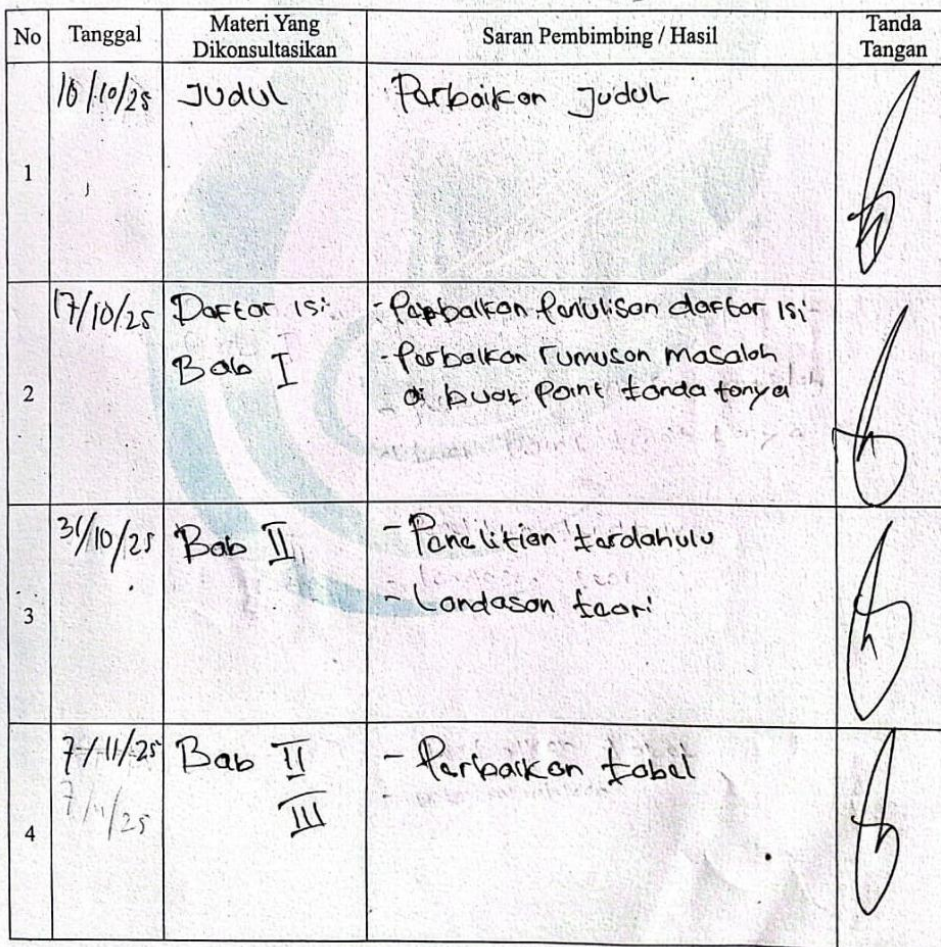 No Tanggal Materi Yang Dikonsultasikan Saran Pembimbing / Hasil Tanda Tangan
1 10/10/25 Judul Perbaikan Judul
2 17/10/25 Daftar Isi - Perbaikan Penulisan daftar isi
Bab I - Perbaikan rumusan masalah
di buat Point tanda tanya
3 31/10/25 Bab II - Penelitian terdahulu
- Landasan teori
4 7/11/25 Bab II - Perbaikan tabel
7/11/25 III